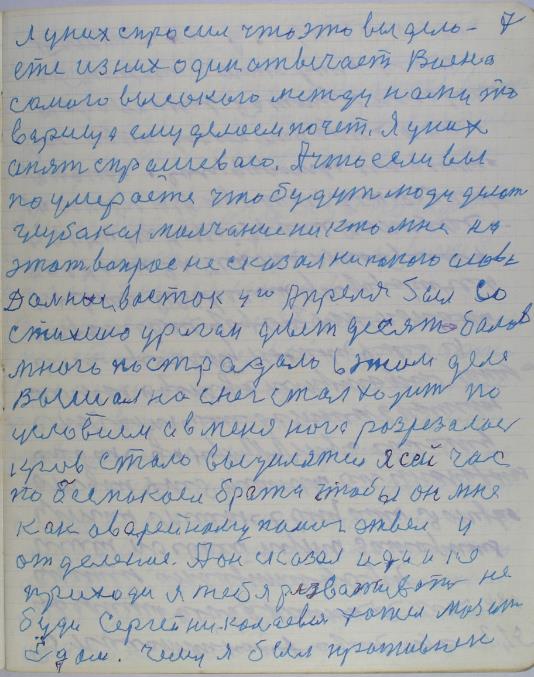 7
я у них спросил что это вы дело-
ете из них один отвечает Воено
самого высокого между нами то
варища ему делоем почет. Я у них
опят спрашеваю. А что если вы
поумераете что будут люди делат
глубакая малчание никто мне на
этот вапрос не сказал ни одного слова
Далний восток 4го Апреля был со
стихию ураган девят десять балов
много пострадало в этом деле
Вышиал на снег стал ходит по
условием а в меня нога разрезалас
кров стало выцилятся я сей час
по беспакаем брата чтобы он мне
как аварейному памог отвел и
отделение. А он сказал иди и не
приходи я тебя развативать не
буду Сергей николаевич хотел
дом. Чему я был противнек